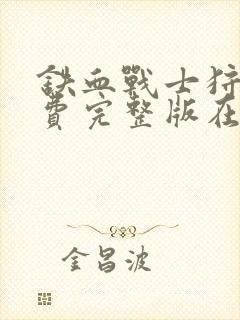 鉄血戰士狩
費完整版在
金昌波